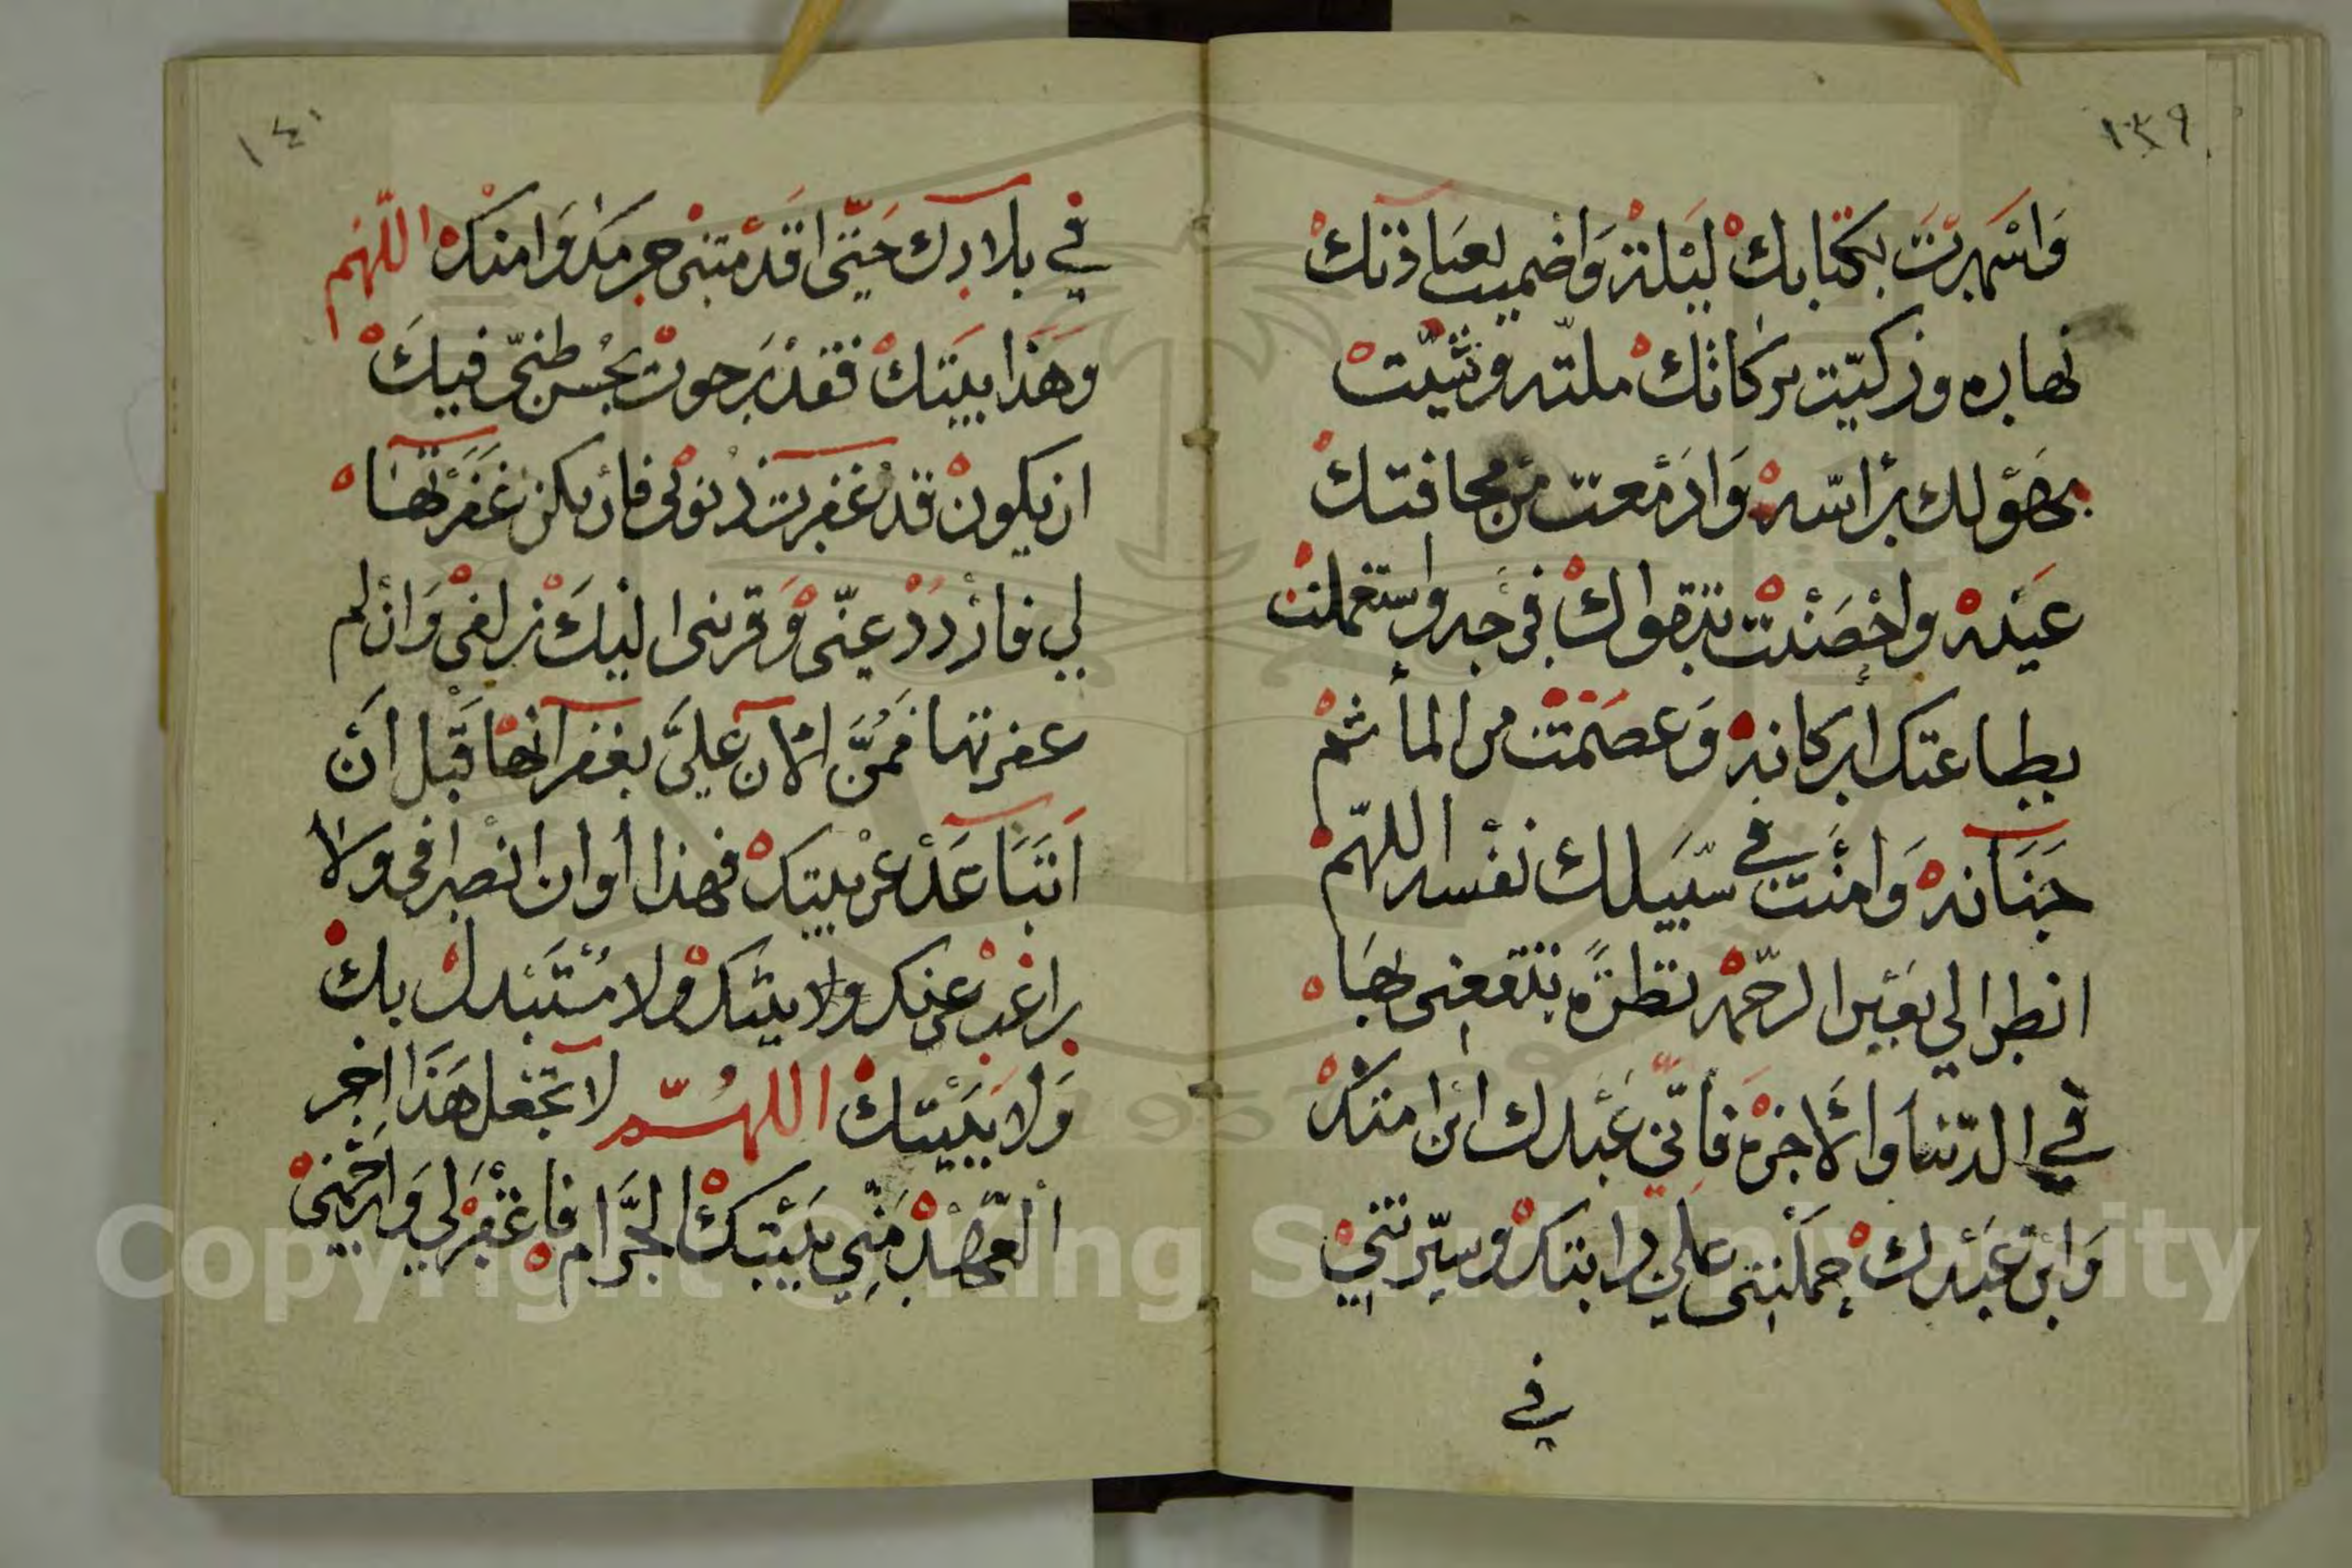 ١٣٩
وَاسْهَرتَ بكتابكْ ليْلهْ وَاضميت لعبَادَتكْ
نهاره وزكيّت بركاتكْ ملتّه وثنيّت
بهؤلك براسّه وَادْمعت من مخافتكْ
عيَنهْ واحْصَنْت بتقواكْ فرجه واستعْملتْ
بطاعتك اركانهْ وَعصَمْتْ من المأثم
جنَانهْ وَامنْت في سبَيلك نفْسه اللهّم
انظر الي بعَيْن الرحّمهْ نظرةً تنفعني بهَا
في الدّنيا والْاخرهْ فانّي عَبْدك ابْن امتكْ
وَابْن عَبْدك حمَلْتني علي دابتكْ وسيّرتنيْ
في
١٤٠
في بلادك حَتّى اقدَمْتنيْ حرمك وَامنكْ اللّهَم
وَهَذا بيَتكْ فقدْ رَجوتْ بحُسن ظنّي فيكَ
ان يكونْ قدْ غفرت ذنُوبي فانْ يكن غَفَرْتهَا
لي فازْددْ عنّي وَقربني اليْكَ زلفيْ وَانْ لم
غفرتها فَمُنَّ الْآن عَليَّ بغفرآنهَا قَبْل اَنْ
اَتَبَاعَدْ عن بيتكْ فهذا اوان انْصرافي ولَا
راغبْ عنك ولا بيتكْ ولا مُسْتَبْدلْ بكْ
وَلا ببَيْتكْ اللهُمّ لا تجْعل هَذَا اخر
الْعَهْدْ مَنّي ببَيْتكْ الحرَام فاغْفرْلي وَارْحَمْنيْ